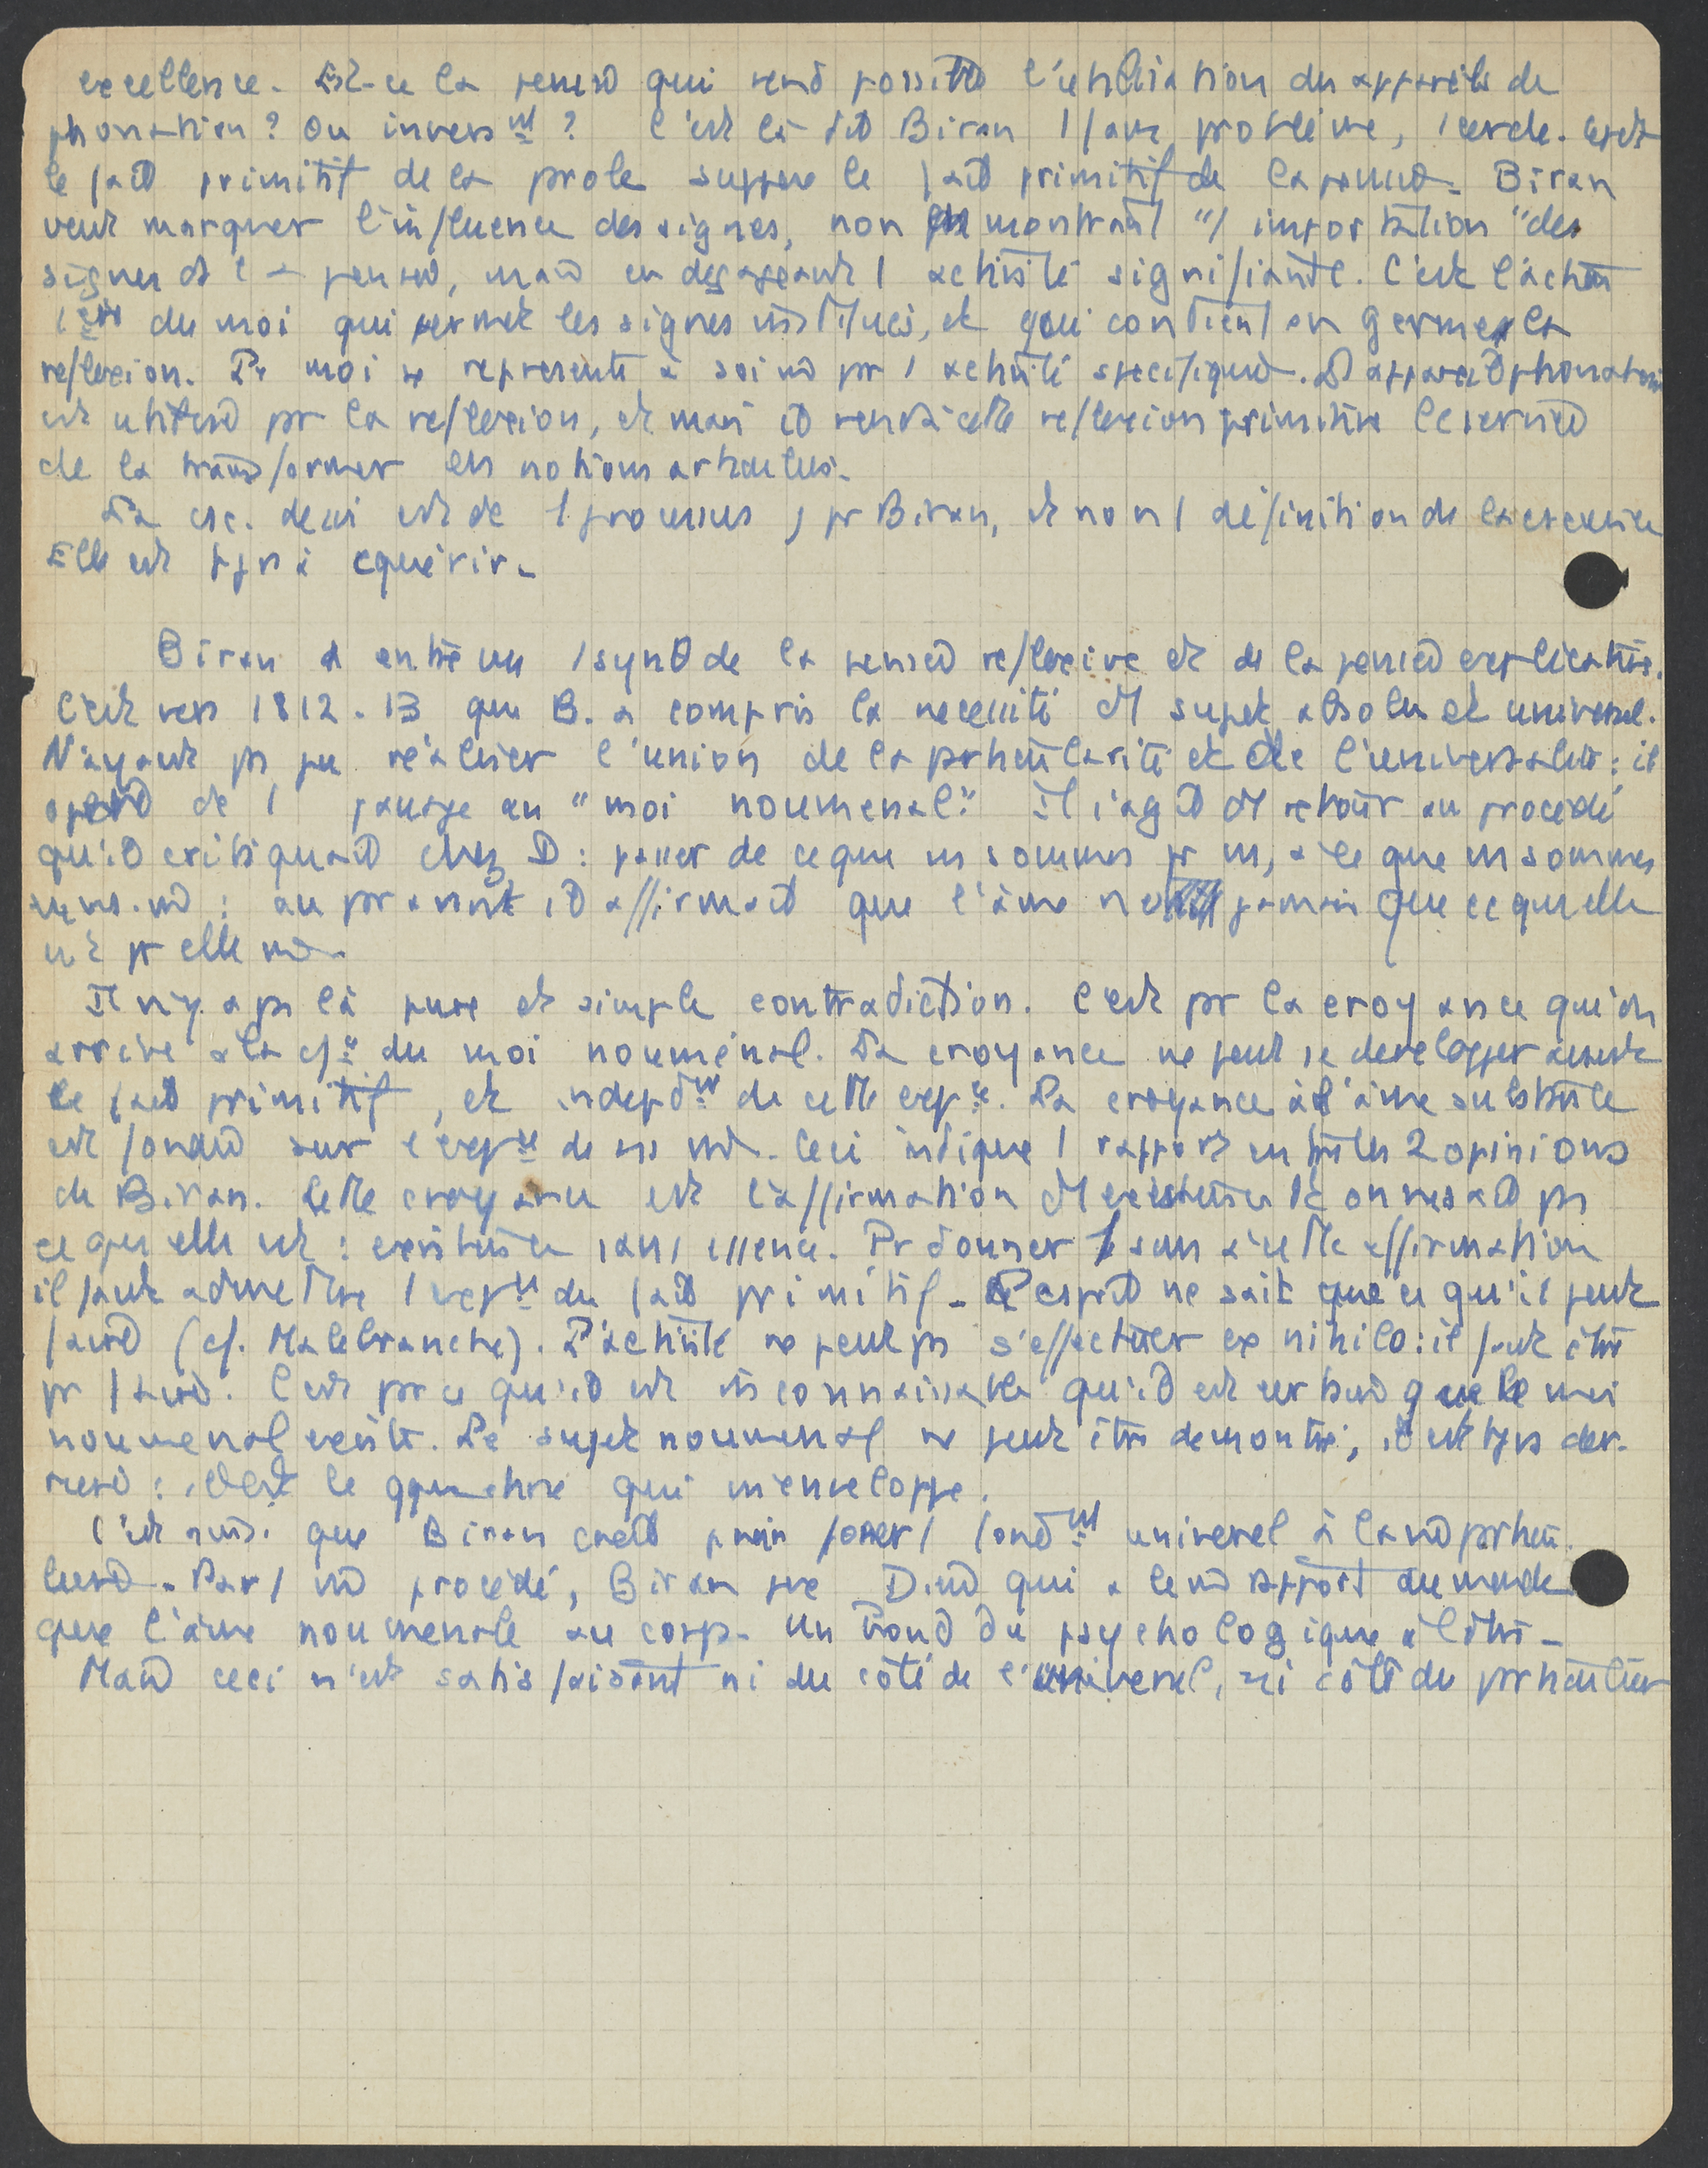 excellence. Est-ce la pensée qui rend possible l'utilisation des appareils de
phonation ? Ou inversnt ? C'est là dit Biran 1 faux problème, 1 cercle. Csdt
le fait primitif de la prole suppose le fait primitif de la pensée. Biran
veut marquer l'influence des signes, non en montrant "1 importation" des
signes ds la pensée, mais en dégageant 1 activité signifiante. C'est l'action
1ère du moi qui permet les signes institués, et qui contient en germe la
reflexion. Pr moi se représente à soi mê pr 1 activité spécifique. L'appareil phonatoire
est utilisé pr la reflexion, et mais il rend à cette reflexion primitive le service
de la transformer en notions articulées.
La csc. de soi est de 1 processus, pr Biran, et non 1 définition de la conscience
Elle est tjrs à cquérir.
Biran a entrevu 1 synth de la pensée reflexive et de la pensée explicative.
C'est vers 1812-13 que B. a compris la necessité d'1 sujet absolu et universel.
N'ayant ps pu réaliser l'union de la prticularité et de l'universalité : il
opère de 1 passage au "moi noumenal." Il s'agit d'1 retour au procédé
qu'il critiquait chez D : passer de ce que ns sommes pr ns, à ce que ns sommes
en ns-mê : auparavant il affirmait que l'âme n'est jamais que ce qu'elle
est pr elle mê.
Il n'y a ps là pure et simple contradiction. C'est pr la croyance qu'on
arrive à la csce du moi nouménal. La croyance ne peut se developper avant
le fait primitif, et indepdnt de cette expce. La croyance à l'âme substitule
est fondée sur l'expce de ns mê. Ceci indique 1 rapport entre les 2 opinions
de Biran. Cette croyance est l'affirmation d'1 existence dt on ne sait ps
ce qu'elle est : existence sans essence. Pr donner 1 sens à cette affirmation
il faut admettre l'expce du fait primitif. L'esprit ne sait que ce qu'il peut
faire (cf. Malebranche). L'activité ne peut ps s'effectuer ex nihilo : il faut être
pr faire. C'est prce qu'il est inconnaissable qu'il est certain que le moi
noumenal existe. Le sujet noumenal ne peut être démontré, il est tjrs der-
rière : c'est le qquechose qui m'enveloppe.
C'est ainsi que Biran croit pvoir poser 1 fondnt universel à la mê prticu-
lière. Par 1 mê procédé, Biran pse Dieu qui a le mê rapport au monde
que l'âme noumenale au corps. Un bond du psychologique à l'être.
Mais ceci n'est satisfaisant ni du côté de l'universel, ni côté du prticulier